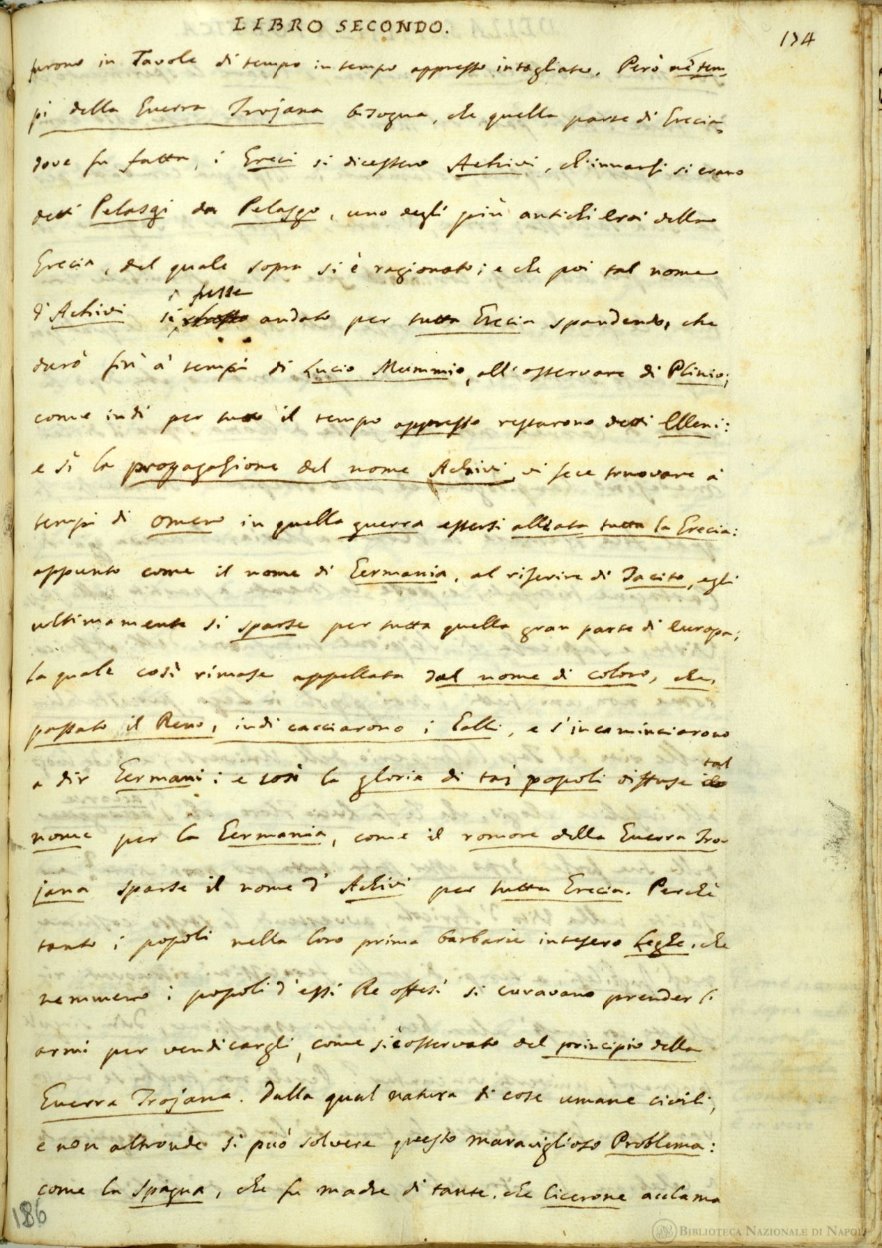 LIBRO SECONDO.
174
furono in Tavole di tempo in tempo appresso intagliate. Però ne' tem-
pi della Guerra Trojana bisogna, che quella parte di Grecia,
dove fu fatta, i Greci si dicessero Achivi, ch'innanzi si erano
detti Pelasgi da Pelasgo, uno degli più antichi Eroi della
Grecia, del quale sopra si è ragionato; e che poi tal nome
d'Achivi si fusse andato per tutta Grecia spandendo, che
durò fin' a' tempi di Lucio Mummio, all'osservare di Plinio;
come indi per tutto il tempo appresso restarono detti Elleni:
e sì la propagazione del nome Achivi vi fece truovare a'
tempi di Omero in quella guerra essersi alleata tutta la Grecia:
appunto come il nome di Germania, al riferire di Tacito, egli
ultimamente si sparse per tutta quella gran parte di Europa;
la quale così rimase appellata dal nome di coloro, che,
passato il Reno, indi cacciarono i Galli, e s'incominciarono
a dir Germani: e così la gloria di tai popoli diffuse tal
nome per la Germania, come il romore della Guerra Tro-
jana sparse il nome d'Achivi per tutta Grecia. Perchè
tanto i popoli nella loro prima barbarie intesero Leghe, che
nemmeno i popoli d'essi Re offesi si curavano prender l'
armi per vendicargli, come si è osservato del principio della
Guerra Trojana. Dalla qual natura di cose umane civili,
e non altronde si può solvere questo maraviglioso Problema:
come la Spagna, che fu madre di tante, che Cicerone acclama
186
BIBLIOTECA NAZIONALE DI NAPOLI